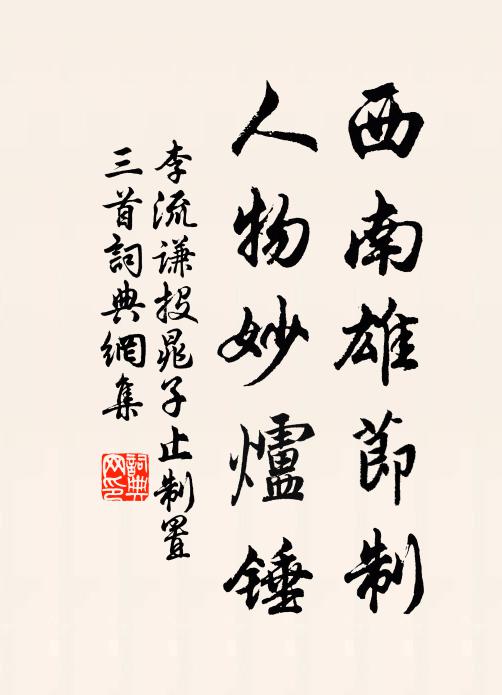 西南雄節制
人物妙爐錘
李流謙投晁子止制置
三首詞典網集
詞典網印